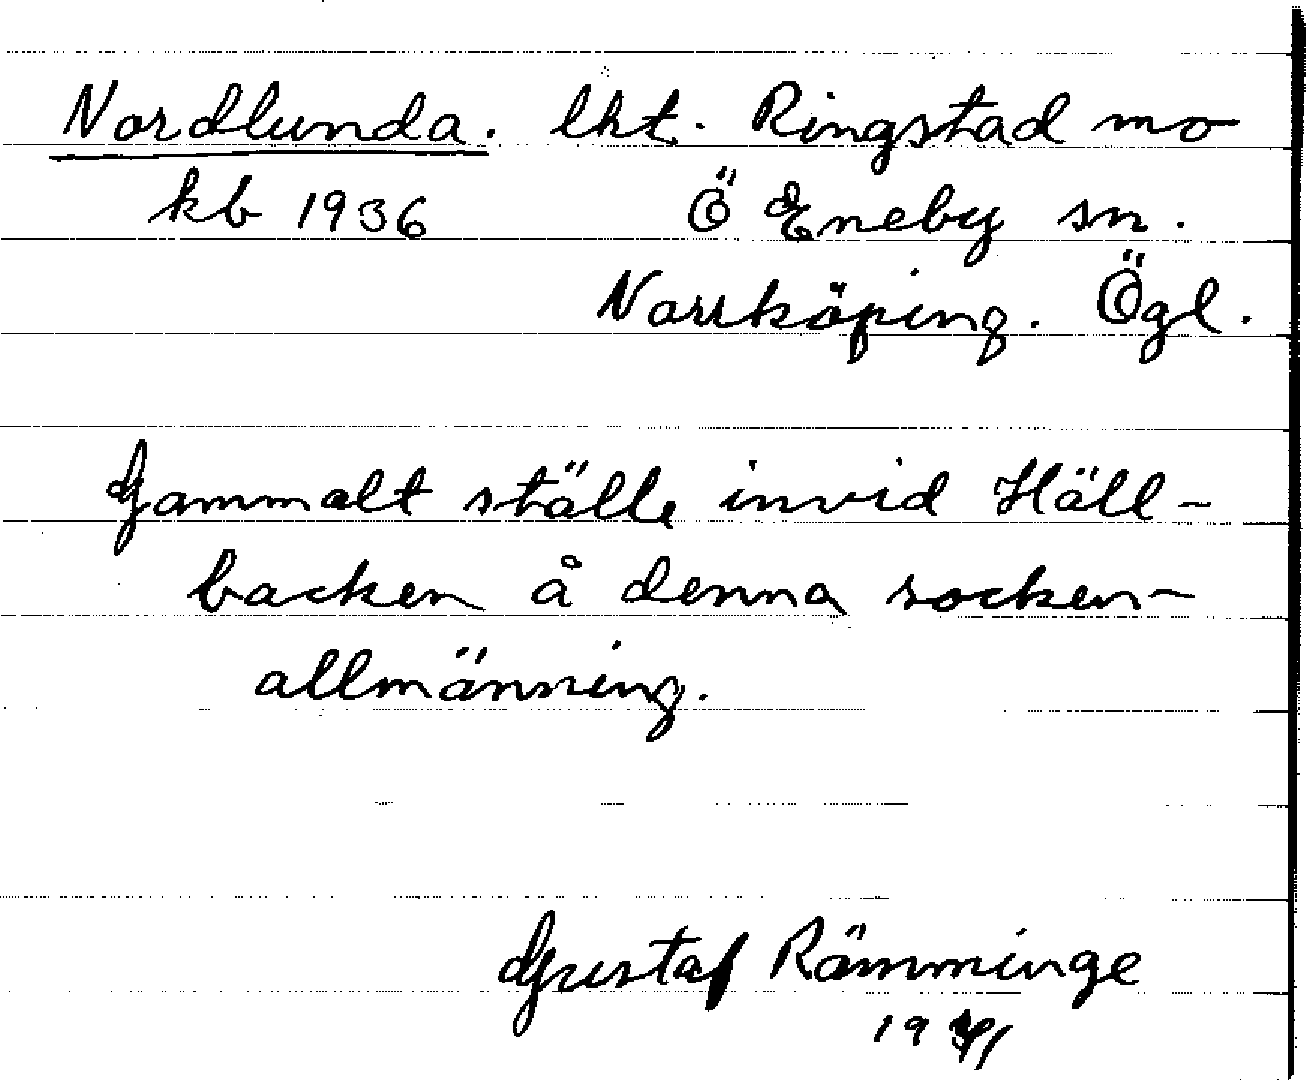 Nordlunda. lht. Ringstad mo
kb 1936 Ö Eneby sn.
Norrköping. Ögl.
Gammalt ställe invid Häll-
backen å denna socken-
allmänning.
Gustaf Rämminge